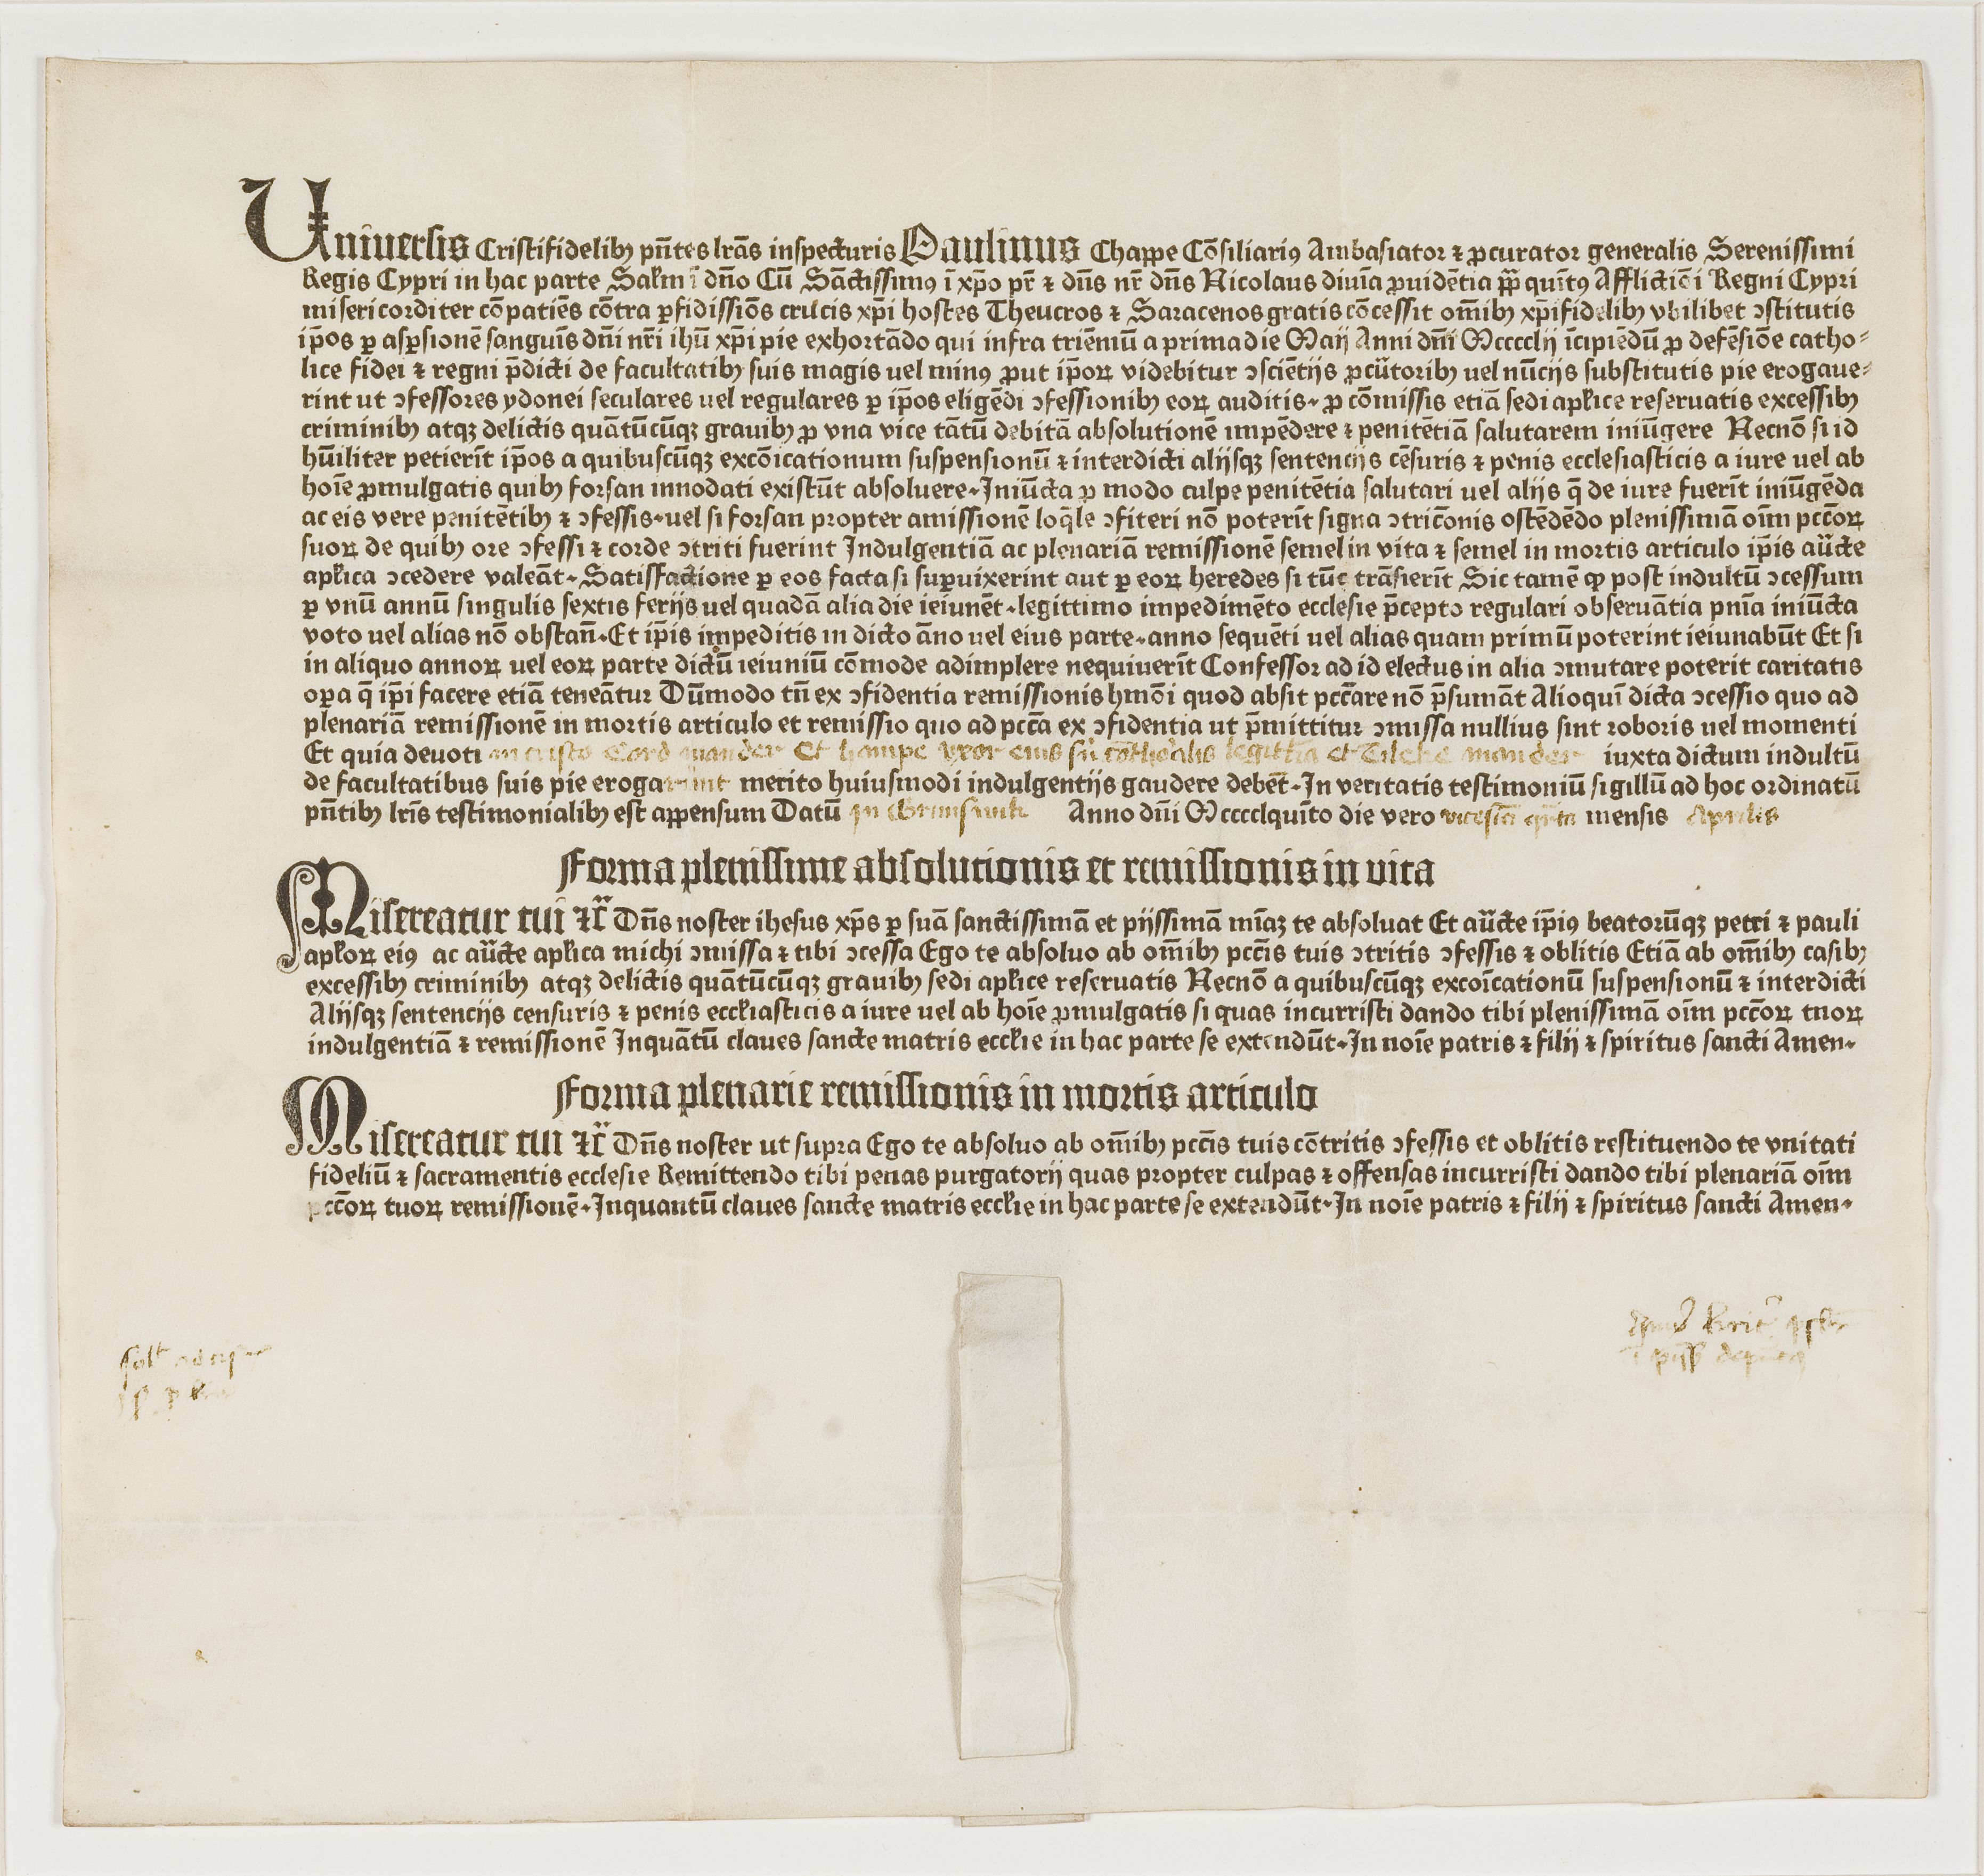 Uniuersis Cristifidelibꝰ pn̄tes lr̄as inspecturis Paulinus Chappe Cōsiliariꝰ Ambasiator ⁊ ꝓcurator generalis Serenissimi
Regis Cypri in hac parte Sałm ī dn̄o Cū Sāctissimꝰ ī xp̄o pr̄ ⁊ dn̄s nr̄ dn̄s Nicolaus diuīa ꝓuidētia pp̄ quītꝰ Afflictiōi Regni Cypri
misericorditer cōpatiēs cōtra ꝑfidissiōs crucis xp̄i hostes Theucros ⁊ Saracenos gratis cōcessit om̄ibꝫ xp̄ifidelibꝫ vbilibet ꝯstitutis
ip̄os ꝑ asꝑsionē sanguīs dn̄i nr̄i ihū xp̄i pie exhortādo qui infra triēniū a prima die Maij Anni dn̄i Mcccclij īcipiēdū ꝓ defēsiōe catho⸗
lice fidei ⁊ regni p̄dicti de facultatibꝫ suis magis uel minꝰ ꝓut ip̄oꝝ videbitur ꝯsciētijs ꝓcūtoribꝫ uel nūcijs substitutis pie erogaue⸗
rint ut ꝯfessores ydonei seculares uel regulares ꝑ ip̄os eligēdi ꝯfessionibꝫ eoꝝ auditis· ꝓ cōmissis etiā sedi apl̄ice reseruatis excessibꝫ
criminibꝫ atqꝫ delictis quātūcūqꝫ grauibꝫ ꝓ vna vice tātū debitā absolutionē impēdere ⁊ penitētiā salutarem iniūgere Necnō si id
hūiliter petierīt ip̄os a quibuscūqꝫ excōicationum suspensionū ⁊ interdicti alijsqꝫ sentencijs cēsuris ⁊ penis ecclesiasticis a iure uel ab
hoīe ꝓmulgatis quibꝫ forsan innodati existūt absoluere· Iniūcta ꝓ modo culpe penitētia salutari uel alijs q̄ de iure fuerīt iniūgēda
ac eis vere penitētibꝫ ⁊ ꝯfessis· uel si forsan propter amissionē loq̄le ꝯfiteri nō poterīt signa ꝯtric̄onis ostēdēdo plenissimā oīm pcc̄oꝝ
suoꝝ de quibꝫ ore ꝯfessi ⁊ corde ꝯtriti fuerint Indulgentiā ac plenariā remissionē semel in vita ⁊ semel in mortis articulo ip̄is aūcte
apl̄ica ꝯcedere valeāt· Satisfactione ꝑ eos facta si suꝑuixerint aut ꝑ eoꝝ heredes si tūc trāsierīt Sic tamē ꝙ post indultū ꝯcessum
ꝑ vnū annū singulis sextis ferijs uel quadā alia die ieiunēt· legittimo impedimēto ecclesie p̄cepto regulari obseruātia pn̄ia iniūcta
voto uel alias nō obstan̄· Et ip̄is impeditis in dicto āno uel eius parte· anno sequēti uel alias quam primū poterint ieiunabūt Et si
in aliquo annoꝝ uel eoꝝ parte dictū ieiuniū cōmode adimplere nequiuerīt Confessor ad id electus in alia ꝯmutare poterit caritatis
oꝑa q̄ ip̄i facere etiā teneātur Dūmodo tn̄ ex ꝯfidentia remissionis hmōi quod absit pccāre nō p̄sumāt Alioquī dicta ꝯcessio quo ad
plenariā remissionē in mortis articulo et remissio quo ad pccā ex ꝯfidentia ut p̄mittitur ꝯmissa nullius sint roboris uel momenti
Et quia deuoti in cristo Cord mander Et hampe vxor eius legittīa et Tileke mander iuxta dictum indultū
de facultatibus suis pie erogarunt merito huiusmodi indulgentijs gaudere debēt· In veritatis testimoniū sigillū ad hoc ordinatū
pn̄tibꝫ lr̄is testimonialibꝫ est appensum Datū in Brunswik Anno dn̄i Mcccclquīto die vero mensis Aprilis
Forma plenissime absolutionis et remissionis in vita
Misereatur tui ⁊c̄ Dn̄s noster ihesus xp̄s ꝑ suā sanctissimā et pijssimā mīaꝫ te absoluat Et aūcte ip̄iꝰ beatorūqꝫ petri ⁊ pauli
apl̄oꝝ eiꝰ ac aūcte apl̄ica michi ꝯmissa ⁊ tibi ꝯcessa Ego te absoluo ab om̄ibꝫ pcc̄is tuis ꝯtritis ꝯfessis ⁊ oblitis Etiā ab om̄ibꝫ casibꝫ
excessibꝫ criminibꝫ atqꝫ delictis quātūcūqꝫ grauibꝫ sedi apl̄ice reseruatis Necnō a quibuscūqꝫ excoīcationū suspensionū ⁊ interdicti
Alijsqꝫ sentencijs censuris ⁊ penis eccl̄iasticis a iure uel ab hoīe ꝓmulgatis si quas incurristi dando tibi plenissimā oīm pcc̄oꝝ tuoꝝ
indulgentiā ⁊ remissionē Inquātū claues sancte matris eccl̄ie in hac parte se extendūt· In noīe patris ⁊ filij ⁊ spiritus sancti Amen·
Forma plenarie remissionis in mortis articulo
Misereatur tui ⁊c̄ Dn̄s noster ut supra Ego te absoluo ab om̄ibꝫ pcc̄is tuis cōtritis ꝯfessis et oblitis restituendo te vnitati
fideliū ⁊ sacramentis ecclesie Remittendo tibi penas purgatorij quas propter culpas ⁊ offensas incurristi dando tibi plenariā oīm
pcc̄oꝝ tuoꝝ remissionē· Inquantū claues sancte matris eccl̄ie in hac parte se extendūt· In noīe patris ⁊ filij ⁊ spiritus sancti Amen·